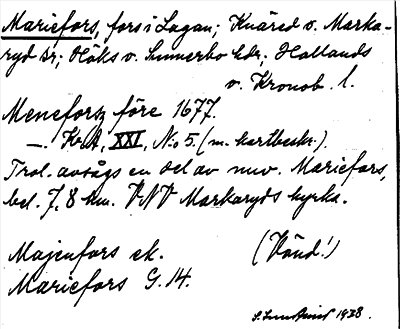 Mariefors, fors i Lagan; Knäred o. Marka-
ryd sr; Höks o. Sunnerbo hdr; Hallands
o. Kronob. l.
Meneforsz före 1677.
—. Kr.A, XXI, N:o 5. (m. kartbeskr.).
Trol. avsågs en del av nuv. Mariefors,
bel. 7,8 km. VNV Markaryds kyrka.
Majenfors ek. (Vänd!)
Mariefors G. 14.
1938.